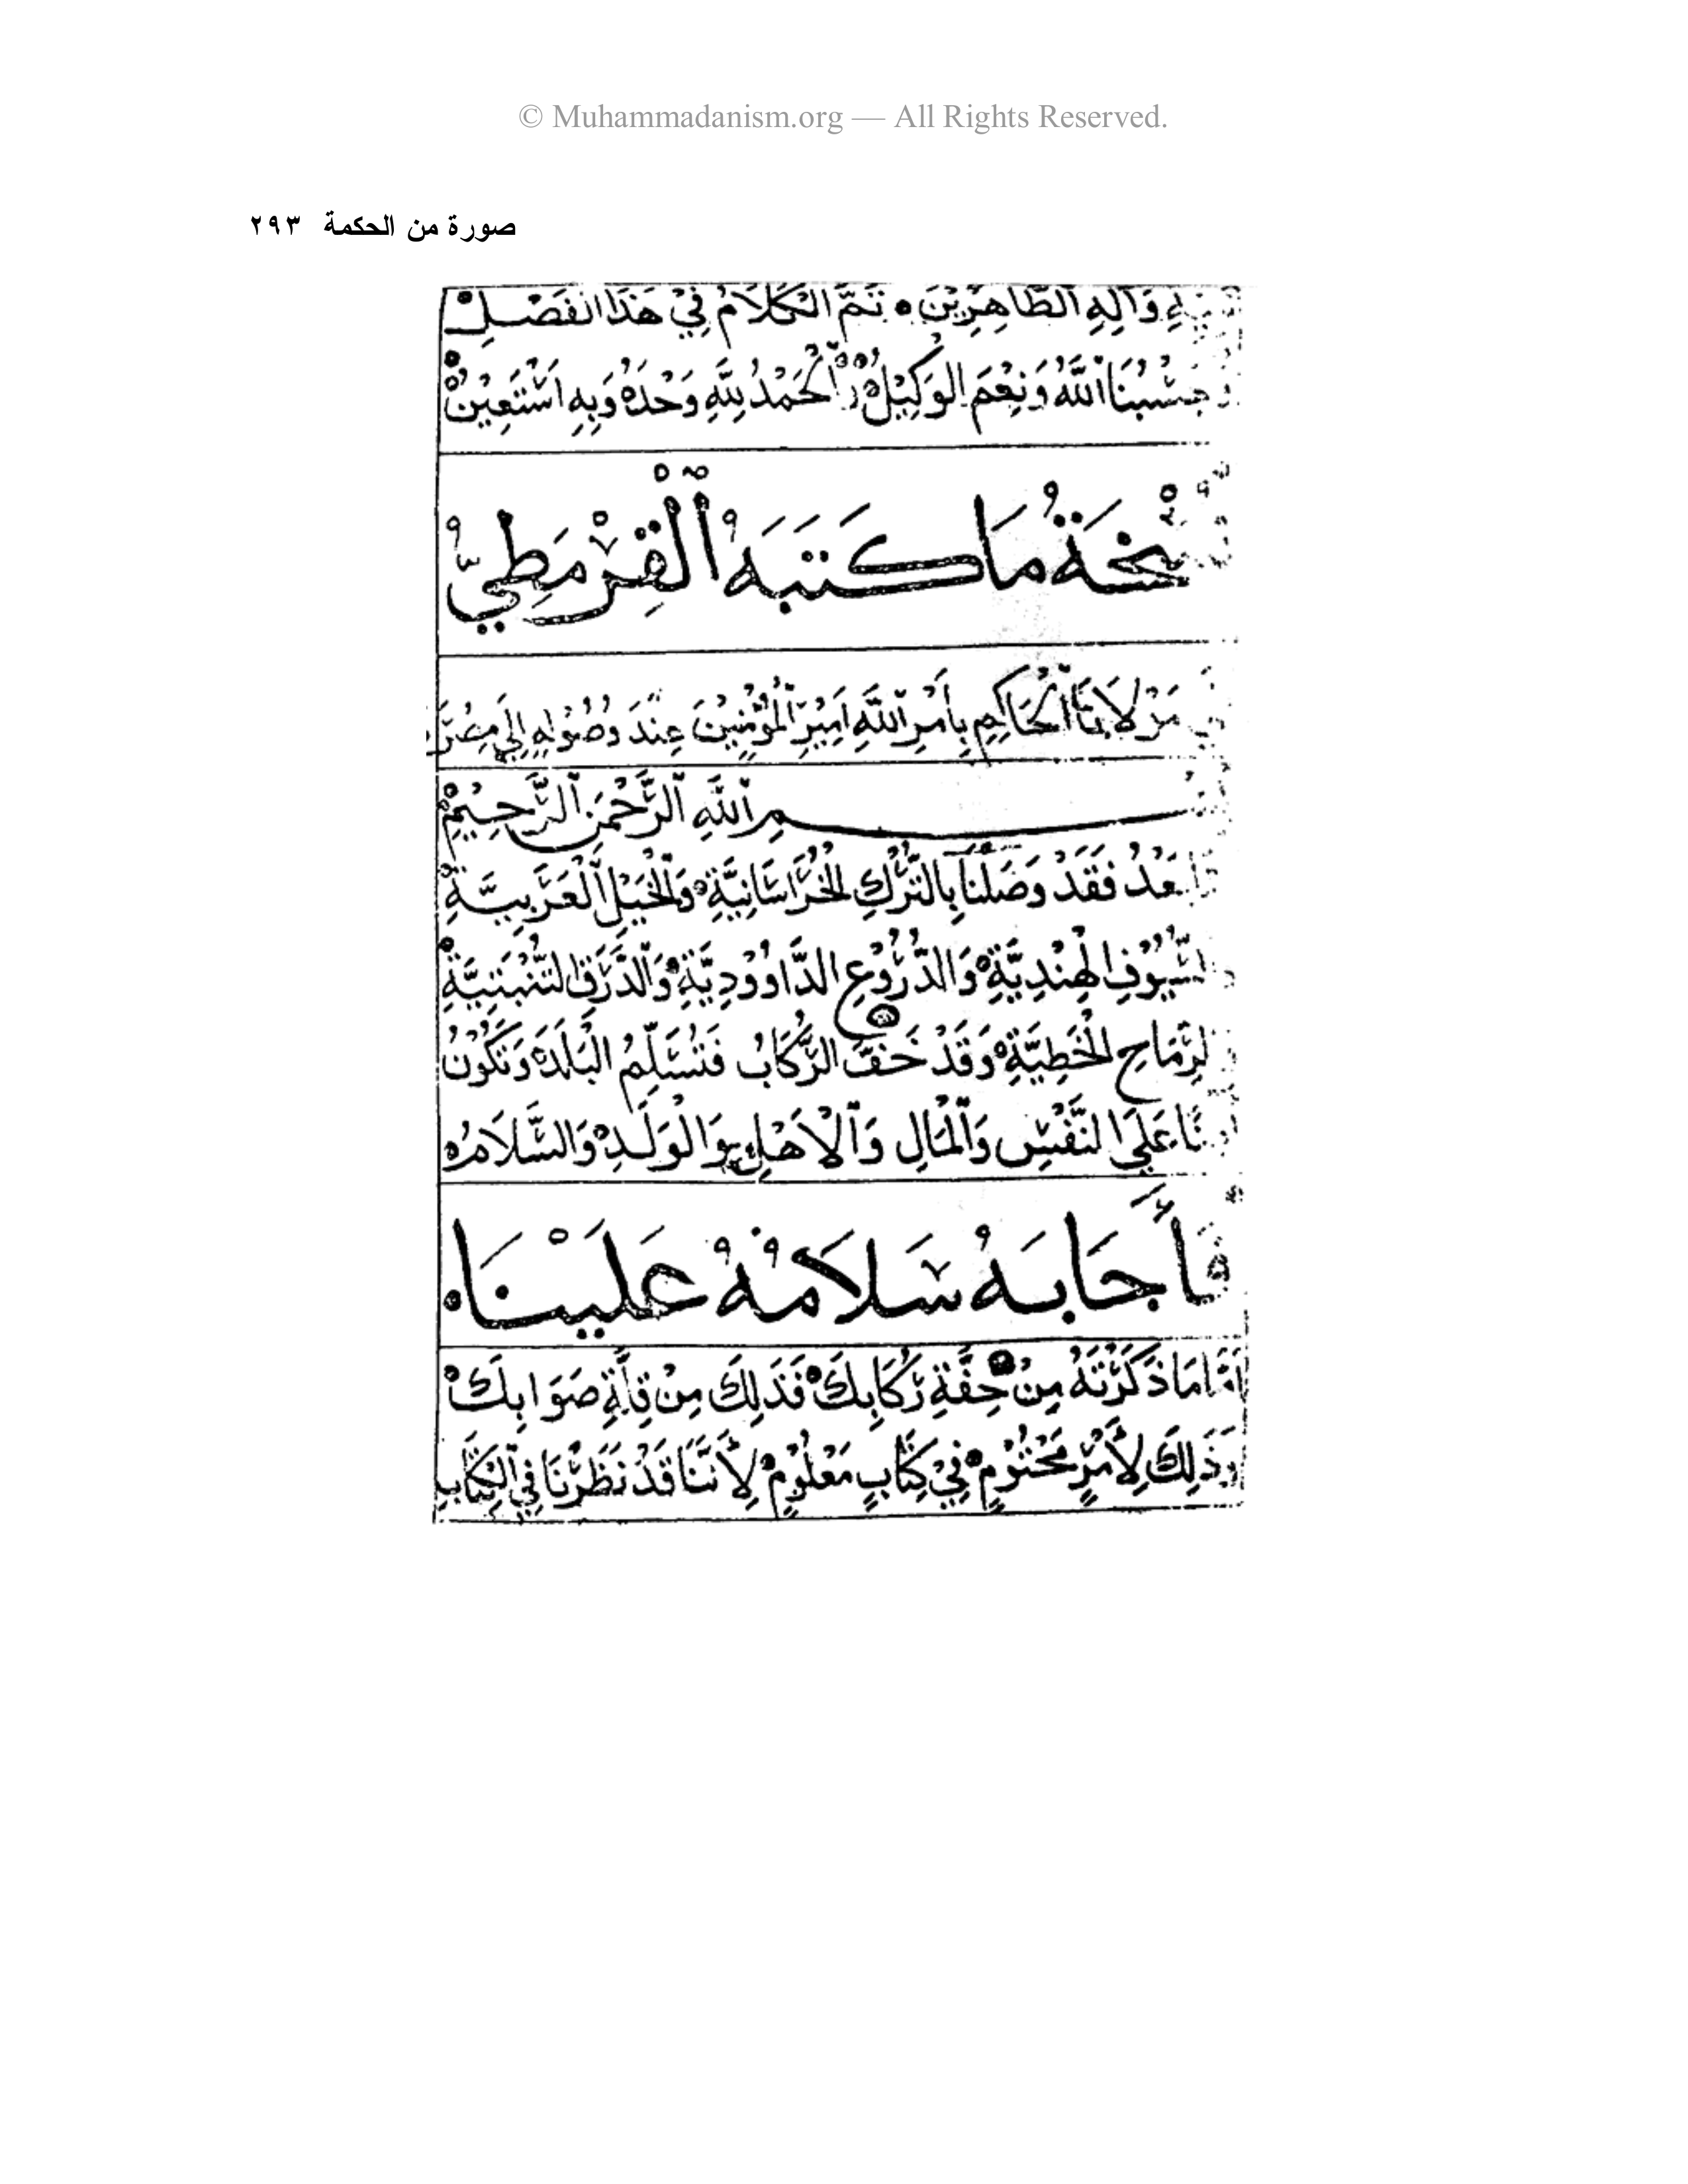 © Muhammadanism.org — All Rights Reserved.
صورة من الحكمة ٢٩٣
وَآلِهِ الطَّاهِرِيْنَ ۞ تَمَّ الْكَلَامُ فِيْ هَذَا الْفَصْلِ
حَسْبُنَا اللَّهُ وَنِعْمَ الوَكِيْلُ وَالْحَمْدُ لِلَّهِ وَحْدَهُ وَبِهِ اَسْتَعِيْنُ
نسْخَةُ مَا كَتَبَهُ الْقِرْمَطِيّ
مَوْلَانَا الْحَاكِمِ بِأَمْرِ اللَّهِ اَمِيْرِ الْمُؤْمِنِيْنَ عِنْدَ وُصُوْلِهِ اِلَى مِصْرَ
بســـم اللَّهِ الرَّحْمَنِ الرَّحِيْمِ
بَعْدُ فَقَدْ وَصَلْنَا بِالتُّرْكِ الْخُرَاسَانِيَّةِ وَالْخَيْلِ الْعَرَبِيَّةِ
السُّيُوْفِ الْهِنْدِيَّةِ وَالدُّرُوْعِ الدَّاوُوْدِيَّةِ وَالدَّرَقِ التُّنْبَتِيَّةِ
الرِّمَاحِ الْخَطِيَّةِ وَقَدْ خَفَّ الرِّكَابُ فَتُسَلِّمُ الْبَلَدَ وَتَكُوْنُ
عَلَى النَّفْسِ وَالْمَالِ وَالْاَهْلِ وَالْوَلَدِ وَالسَّلَامُ
فَأَجَابَهُ سَلَامُهُ عَلَيْنَا
اَمَّا مَا ذَكَرْتَهُ مِنْ خِفَّةِ رِكَابِكَ فَذَلِكَ مِنْ قِلَّةِ صَوَابِكَ
وَذَلِكَ لِأَمْرٍ مَحْتُوْمٍ فِيْ كِتَابٍ مَعْلُوْمٍ لِأَنَّنَا قَدْ نَظَرْنَا فِي الْكِتَابِ